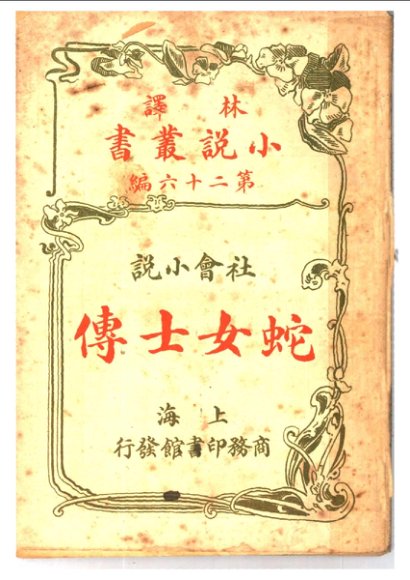 林譯
小說叢書
第二十六編
社會小說
蛇女士傳
上海
商務印書館發行